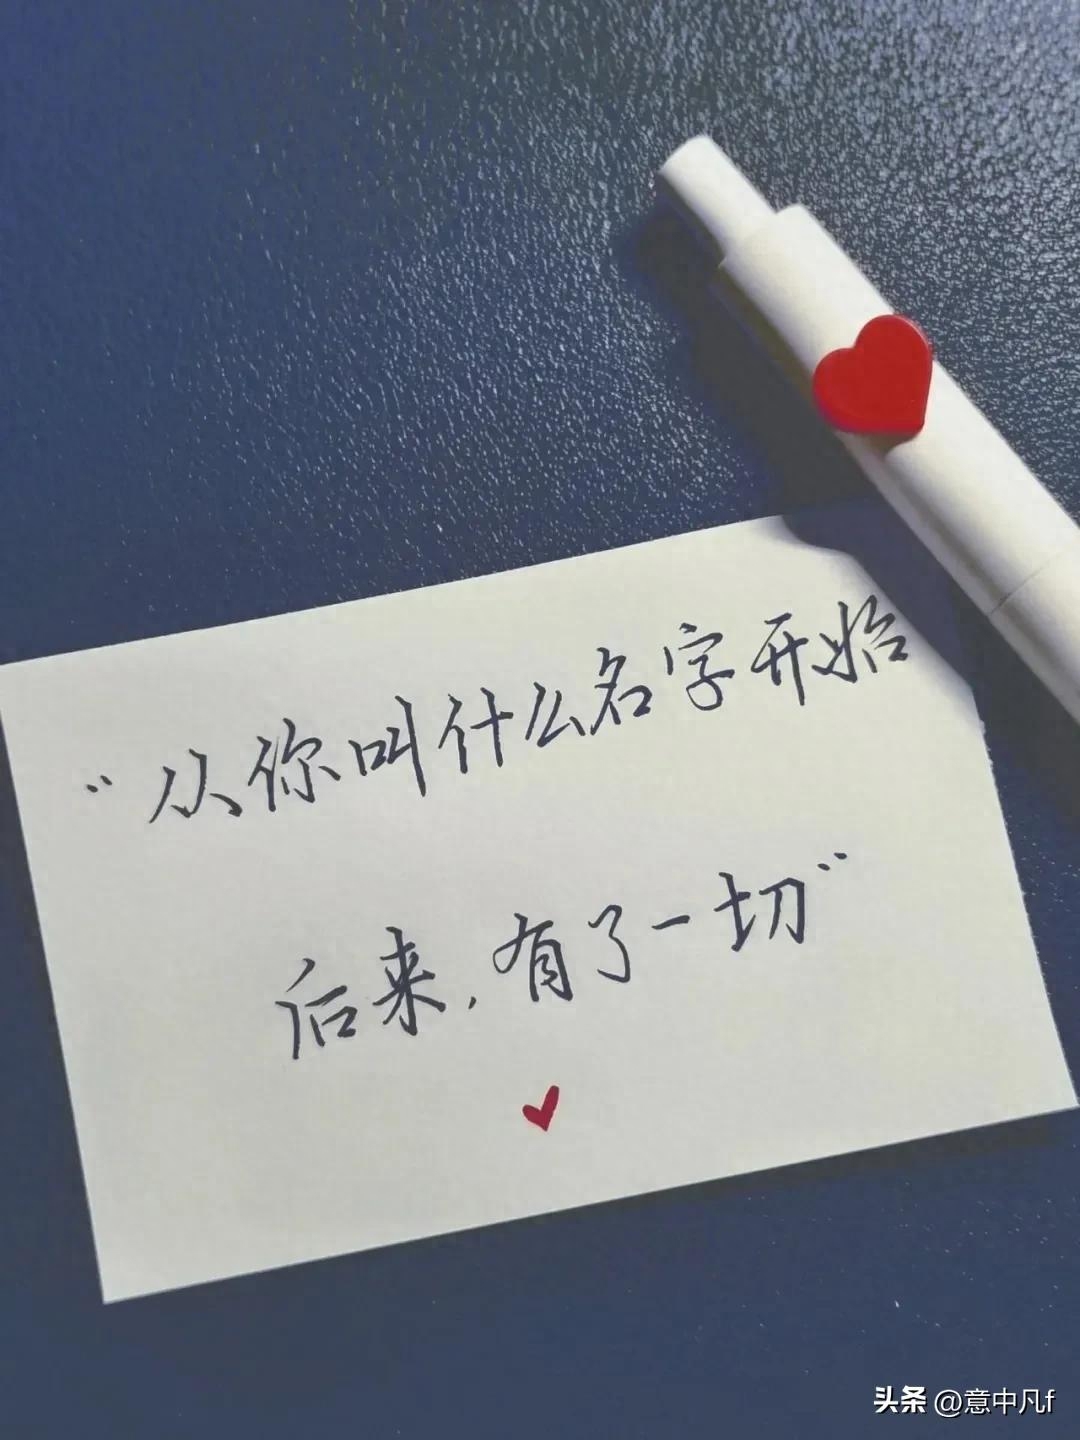 “从你叫什么名字开始
后来，有了一切”
头条 @意中凡f